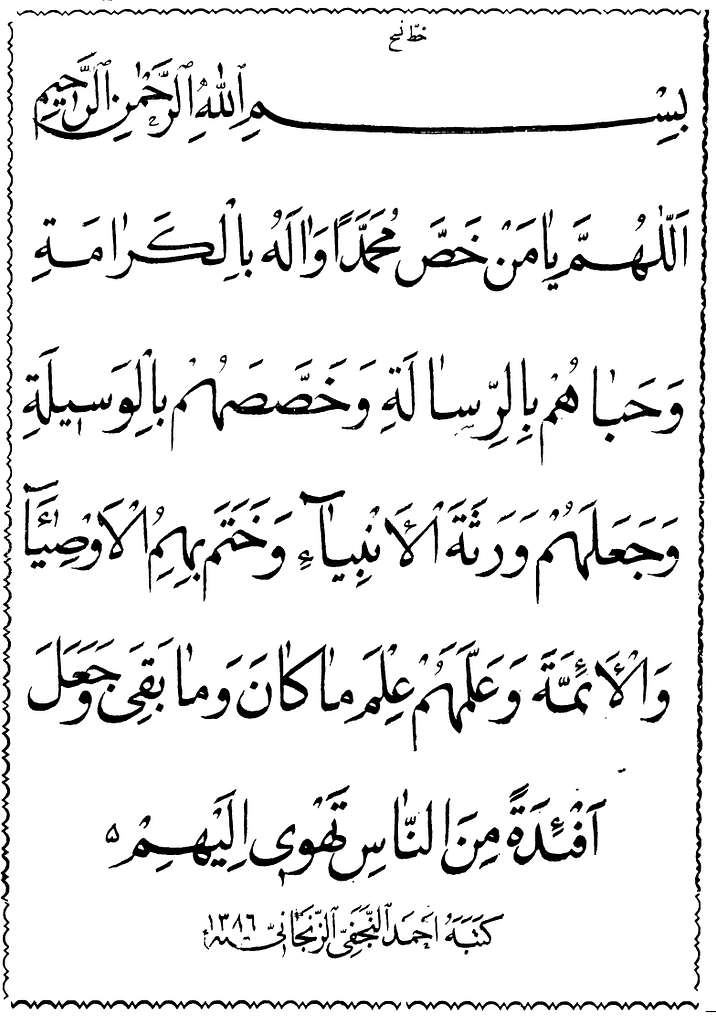 خط نسخ
بِسْمِ اللهِ الرَّحْمٰنِ الرَّحيمِ
اَللّٰهُمَّ يٰا مَنْ خَصَّ مُحَمَّدًا وَاٰلَهُ بِالْكَرٰامَةِ
وَحَبٰاهُمْ بِالرِّسٰالَةِ وَخَصَّصَهُمْ بِالْوَسيلَةِ
وَجَعَلَهُمْ وَرَثَةَ الْاَنْبِيٰآءِ وَخَتَمَ بِهِمُ الْاَوْصِيٰآءَ
وَالْاَئِمَّةَ وَعَلَّمَهُمْ عِلْمَ مٰا كٰانَ وَمٰا بَقِىَ وَجَعَلَ
اَفْئِدَةً مِنَ النّٰاسِ تَهْوى اِلَيْهِمْ ۵
كَتَبَهُ اَحمَد النَّجَفىّ الزَّنجانىّ سنة ۱۳۸۶